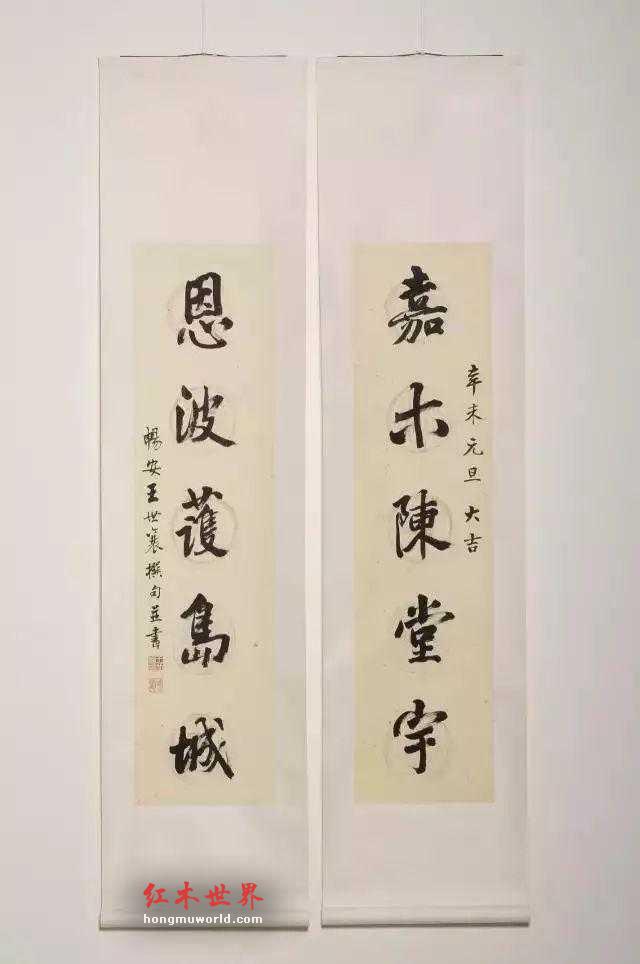 辛未元旦 大吉
嘉木陳堂宇
恩波護島城
暢安王世襄撰句並書
红木世界
hongmuworld.com